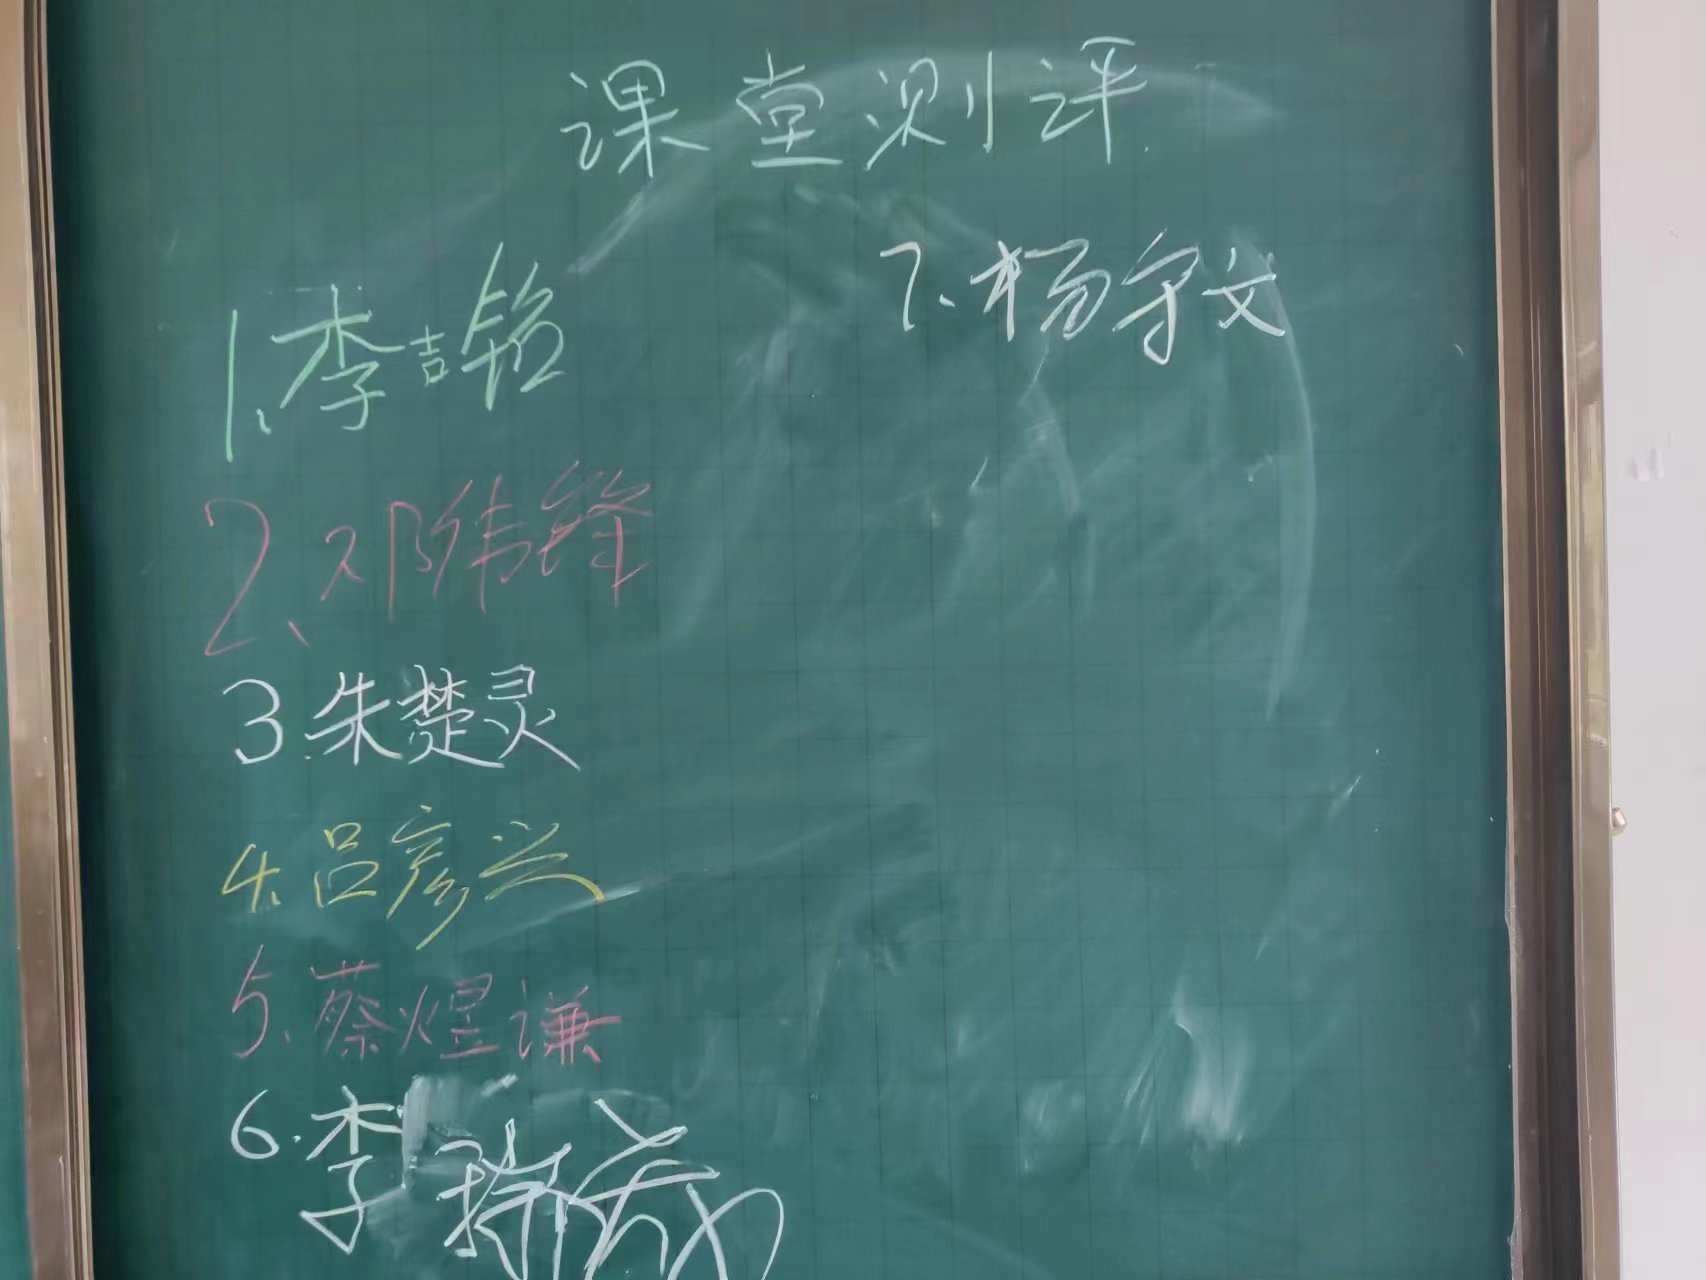 课堂测评
1、李吉铭
2、邓纬锋
3.朱楚灵
4.吕彦兴
5、蔡煜谦
6.李
7.杨守文